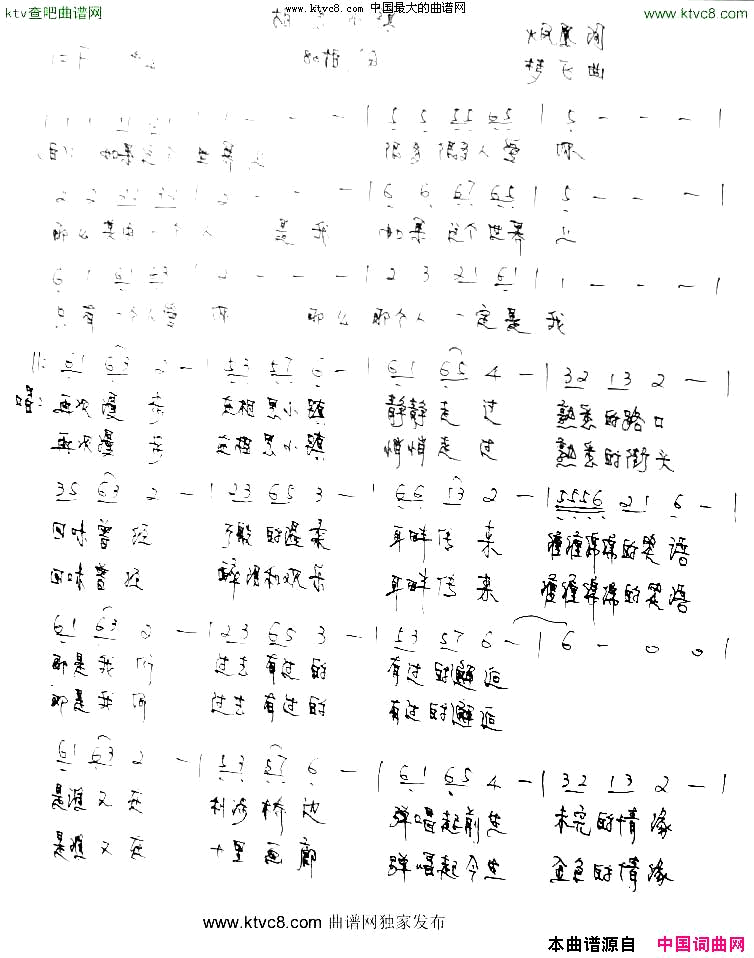 ktv查吧曲谱网
www.ktvc8.com 中国最大的曲谱网
www.ktvc8.com
相思小镇
词
梦飞曲
1=F
1 1 1 1 1 1 1 1 - - - | 5 5 55 65 | 5 - - - |
白: 如果这个世界上 很多很多人爱 你
2 2 22 22 | 2 - - - | 6 6 67 65 | 5 - - - |
那么其中一个人 是我 如果这个世界上
6 1 61 63 | 2 - - - | 2 3 21 61 | 1 - - - |
只有一个人爱 你 那么那个人一定是我
||: 61 63 2 - | 53 57 6 - | 61 65 4 - | 32 13 2 - |
唱: 再次漫步 在相思小镇 静静走过 熟悉的路口
再次漫步 在相思小镇 悄悄走过 熟悉的街头
35 63 2 - | 23 65 3 - | 66 13 2 - | 5556 21 6 - |
回味曾经 的温柔 耳畔传来 缠缠绵绵的笑语
回味曾经 醉酒和欢乐 耳畔传来 缠缠绵绵的笑语
61 63 2 - | 23 65 3 - | 53 57 6 - | 6 - 0 0 |
那是我们 过去有过的 有过的邂逅
那是我们 过去有过的 有过的邂逅
61 63 2 - | 53 57 6 - | 61 65 4 - | 32 13 2 - |
是谁又在 桥边 弹唱起前世 未完的情缘
是谁又在 十里画廊 弹唱起今生 金色的情缘
www.ktvc8.com 曲谱网独家发布
本曲谱源自 中国词曲网